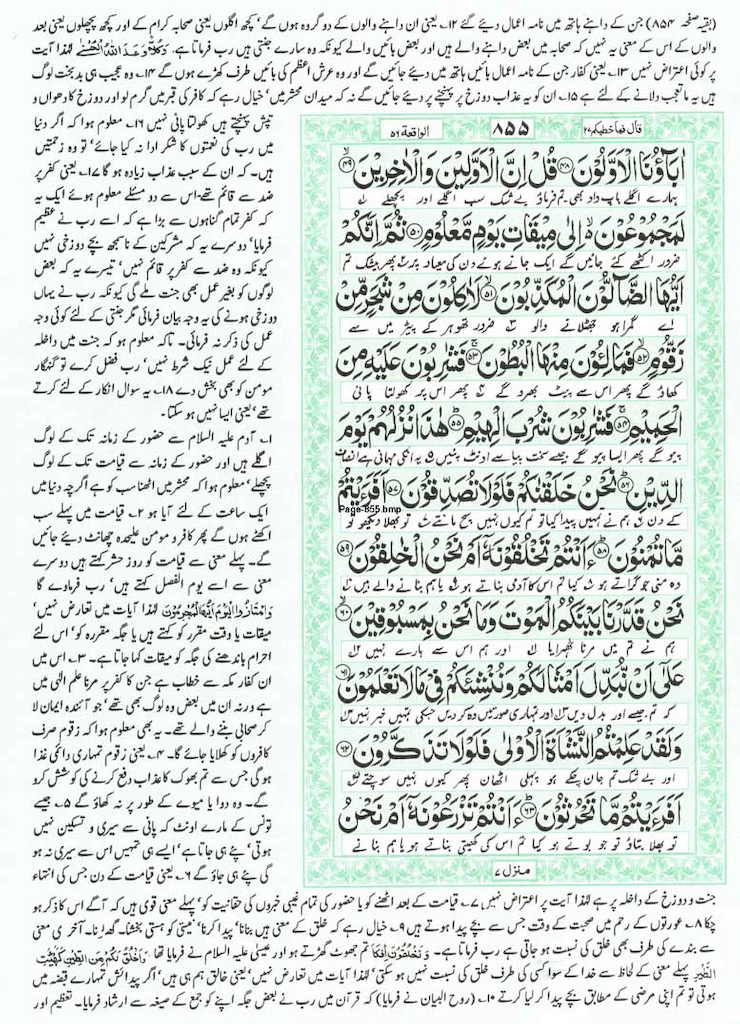 (بقیہ صفحہ ۸۵۴) جن کے داہنے ہاتھ میں نامہ اعمال دیئے گئے ۱۲۔ یعنی ان داہنے والوں کے دو گروہ ہوں گے' کچھ اگلوں یعنی صحابہ کرام کے اور کچھ پچھلوں یعنی بعد
والوں کے اس کے معنی یہ نہیں کہ صحابہ میں بعض داہنے والے ہیں اور بعض بائیں والے کیونکہ وہ سارے جنتی ہیں رب فرماتا ہے۔ وَكُلًّا وَّعَدَ اللّٰهُ الْحُسْنٰى لہٰذا آیت
پر کوئی اعتراض نہیں ۱۳۔ یعنی کفار جن کے نامہ اعمال بائیں ہاتھ میں دیئے جائیں گے اور وہ عرش اعظم کی بائیں طرف کھڑے ہوں گے ۱۴۔ وہ عجیب ہی بدبخت لوگ
ہیں یہ ما تعجب دلانے کے لئے ہے ۱۵۔ ان کو یہ عذاب دوزخ پر پہنچنے پر دیئے جائیں گے نہ کہ میدان محشر میں' خیال رہے کہ کافر کی قبر میں گرم لو اور دوزخ کا دھواں و
تپش پہنچتے ہیں کھولتا پانی نہیں ۱۶۔ معلوم ہوا کہ اگر دنیا
میں رب کی نعمتوں کا شکر ادا نہ کیا جائے' تو وہ زحمتیں
ہیں۔ کہ ان کے سبب عذاب زیادہ ہو گا ۱۷۔ یعنی کفر پر
ضد سے قائم تھے۔ اس سے دو مسئلے معلوم ہوئے ایک یہ
کہ کفر تمام گناہوں سے بڑا ہے کہ اسے رب نے عظیم
فرمایا' دوسرے یہ کہ مشرکین کے ناسمجھ بچے دوزخی نہیں
کیونکہ وہ ضد سے کفر پر قائم نہیں' تیسرے یہ کہ بعض
لوگوں کو بغیر عمل بھی جنت ملے گی کیونکہ رب نے یہاں
دوزخی ہونے کی یہ وجہ بیان فرمائی مگر جنتی کے لئے کوئی وجہ
عمل کی ذکر نہ فرمائی۔ تاکہ معلوم ہو کہ جنت میں داخلہ
کے لئے عمل نیک شرط نہیں' رب فضل کرے تو گنہگار
مومن کو بھی بخش دے ۱۸۔ یہ سوال انکار کے لئے کرتے
تھے' یعنی ایسا نہیں ہو سکتا۔
۱۔ آدم علیہ السلام سے حضور کے زمانہ تک کے لوگ
اگلے ہیں اور حضور کے زمانہ سے قیامت تک کے لوگ
پچھلے' معلوم ہوا کہ محشر میں اٹھنا سب کو ہے اگرچہ دنیا میں
ایک ساعت کے لئے آیا ہو ۲۔ قیامت میں پہلے سب
اکٹھے ہوں گے پھر کافر و مومن علیحدہ چھانٹ دیئے جائیں
گے۔ پہلے معنی سے قیامت کو روز حشر کہتے ہیں دوسرے
معنی سے اسے یوم الفصل کہتے ہیں' رب فرماوے گا
وَامْتَازُوا الْيَوْمَ اَيُّهَا الْمُجْرِمُوْنَ لہٰذا آیات میں تعارض نہیں'
میقات یا وقت مقرر کو کہتے ہیں یا جگہ مقررہ کو' اس لئے
احرام باندھنے کی جگہ کو میقات کہا جاتا ہے۔ ۳۔ اس میں
ان کفار مکہ سے خطاب ہے جن کا کفر پر مرنا علم الٰہی میں
ہے ورنہ ان میں بعض وہ لوگ بھی تھے' جو آئندہ ایمان لا
کر صحابی بننے والے تھے۔ یہ بھی معلوم ہوا کہ زقوم صرف
کافروں کو کھلایا جائے گا۔ ۴۔ یعنی زقوم تمہاری دائمی غذا
ہو گی جس سے تم بھوک کا عذاب دفع کرنے کی کوشش کرو
گے۔ وہ دوا یا میوے کے طور پر نہ کھاؤ گے ۵۔ جیسے
تونس کے مارے اونٹ کہ پانی سے سیری و تسکین نہیں
ہوتی' پئے ہی جاتا ہے' ایسے ہی تمہیں اس سے سیری نہ ہو
گی پئے ہی جاؤ گے ۶۔ یعنی قیامت کے دن جس کی انتہاء
قال فما خطبكم ۲۷
۸۵۵
الواقعة ۵۶
اٰبَآؤُنَا الْاَوَّلُوْنَ ﴿۴۸﴾ قُلْ اِنَّ الْاَوَّلِيْنَ وَالْاٰخِرِيْنَ ﴿۴۹﴾
ہمارے اگلے باپ دادا بھی تم فرماؤ بے شک سب اگلے اور پچھلے ۱
لَمَجْمُوْعُوْنَ ۙ اِلٰى مِيْقَاتِ يَوْمٍ مَّعْلُوْمٍ ﴿۵۰﴾ ثُمَّ اِنَّكُمْ
ضرور اکٹھے کئے جائیں گے ایک جانے ہوئے دن کی میعاد پر ۲ پھر بیشک تم
اَيُّهَا الضَّآلُّوْنَ الْمُكَذِّبُوْنَ ﴿۵۱﴾ لَاٰكِلُوْنَ مِنْ شَجَرٍ مِّنْ
اے گمراہو جھٹلانے والو ۳ ضرور تھوہر کے پیڑ میں سے
زَقُّوْمٍ ﴿۵۲﴾ فَمَالِـُٔوْنَ مِنْهَا الْبُطُوْنَ ﴿۵۳﴾ فَشٰرِبُوْنَ عَلَيْهِ مِنَ
کھاؤ گے پھر اس سے پیٹ بھرو گے ۴ پھر اس پر کھولتا پانی
الْحَمِيْمِ ﴿۵۴﴾ فَشٰرِبُوْنَ شُرْبَ الْهِيْمِ ﴿۵۵﴾ هٰذَا نُزُلُهُمْ يَوْمَ
پیو گے پھر ایسا پیو گے جیسے سخت پیاسے اونٹ پئیں ۵ یہ انکی مہمانی ہے انصاف
الدِّيْنِ ﴿۵۶﴾ نَحْنُ خَلَقْنٰكُمْ فَلَوْلَا تُصَدِّقُوْنَ ﴿۵۷﴾ اَفَرَءَيْتُمْ
Page-855.bmp
کے دن ۶ ہم نے تمہیں پیدا کیا تو تم کیوں نہیں سچ مانتے ۷ تو بھلا دیکھو تو
مَّا تُمْنُوْنَ ﴿۵۸﴾ ءَاَنْتُمْ تَخْلُقُوْنَهٗٓ اَمْ نَحْنُ الْخٰلِقُوْنَ ﴿۵۹﴾
وہ منی جو گراتے ہو ۸ کیا تم اس کا آدمی بناتے ہو ۹ یا ہم بنانے والے ہیں ۱۰
نَحْنُ قَدَّرْنَا بَيْنَكُمُ الْمَوْتَ وَمَا نَحْنُ بِمَسْبُوْقِيْنَ ﴿۶۰﴾
ہم نے تم میں مرنا ٹھہرایا ۱۱ اور ہم اس سے ہارے نہیں ۱۲
عَلٰٓى اَنْ نُّبَدِّلَ اَمْثَالَكُمْ وَنُنْشِئَكُمْ فِيْ مَا لَا تَعْلَمُوْنَ ﴿۶۱﴾
کہ تم جیسے اور بدل دیں ۱۳ اور تمہاری صورتیں وہ کر دیں جس کی تمہیں خبر نہیں ۱۴
وَلَقَدْ عَلِمْتُمُ النَّشْاَةَ الْاُوْلٰى فَلَوْلَا تَذَكَّرُوْنَ ﴿۶۲﴾
اور بے شک تم جان چکے ہو پہلی اٹھان پھر کیوں نہیں سوچتے ۱۵
اَفَرَءَيْتُمْ مَّا تَحْرُثُوْنَ ﴿۶۳﴾ ءَاَنْتُمْ تَزْرَعُوْنَهٗٓ اَمْ نَحْنُ
تو بھلا بتاؤ تو جو بوتے ہو کیا تم اس کی کھیتی بناتے ہو یا ہم بنانے
منزل ۷
جنت و دوزخ کے داخلہ پر ہے لہٰذا آیت پر اعتراض نہیں ۷۔ قیامت کے بعد اٹھنے کو یا حضور کی تمام غیبی خبروں کی حقانیت کو' پہلے معنی قوی ہیں کہ آگے اس کا ذکر ہو
چکا ۸۔ عورتوں کے رحم میں صحبت کے وقت جس سے بچے پیدا ہوتے ہیں ۹۔ خیال رہے کہ خلق کے معنی ہیں بنانا' پیدا کرنا' نیستی کو ہستی بخشنا۔ گھڑ لینا۔ آخری معنی
سے بندے کی طرف بھی خلق کی نسبت ہو جاتی ہے رب فرماتا ہے۔ وَتَخْلُقُوْنَ اِفْكًا تم جھوٹ گھڑتے ہو اور عیسیٰ علیہ السلام نے فرمایا تھا۔ وَاَخْلُقُ لَكُمْ مِّنَ الطِّيْنِ كَهَيْئَةِ
الطَّيْرِ پہلے معنی کے لحاظ سے خدا کے سوا کسی کی طرف خلق کی نسبت نہیں ہو سکتی' لہٰذا آیات میں تعارض نہیں' یعنی خالق ہم ہی ہیں' اگر پیدائش تمہارے قبضہ میں
ہوتی تو تم اپنی مرضی کے مطابق بچے پیدا کر لیا کرتے ۱۰۔ (روح البیان نے فرمایا) کہ قرآن میں رب نے بعض جگہ اپنے کو جمع کے صیغہ سے ارشاد فرمایا۔ تعظیم اور